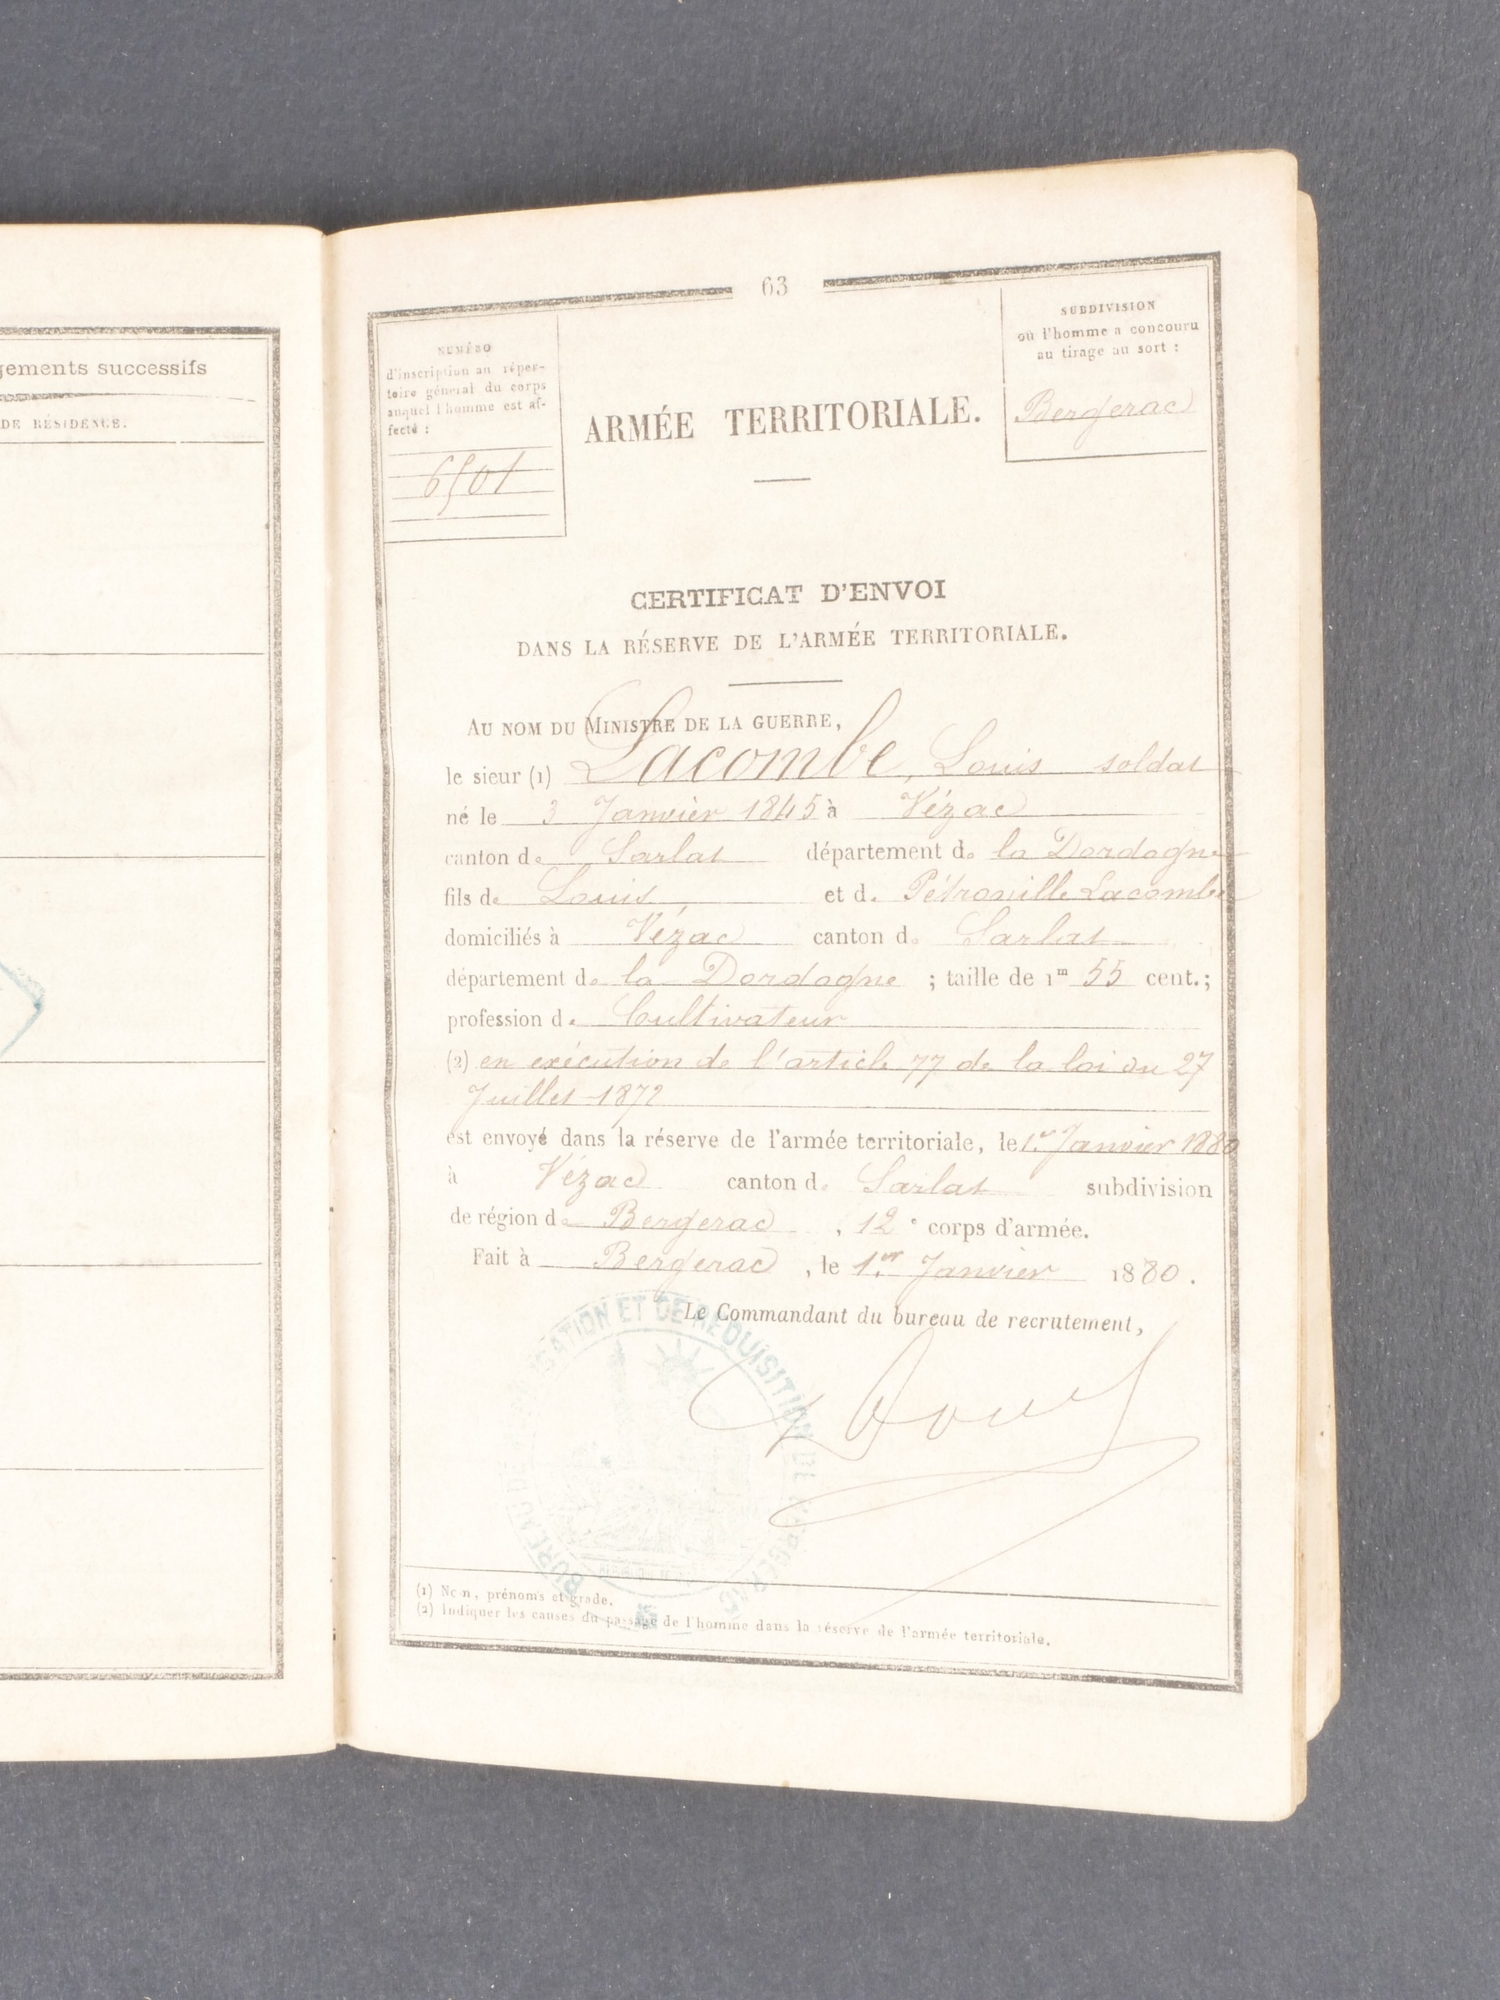 gements successifs
DE RÉSIDENCE.
63
NUMÉRO
d'inscription au réper-
toire général du corps
auquel l'homme est af-
fecté :
6501
ARMÉE TERRITORIALE.
SUBDIVISION
où l'homme a concouru
au tirage au sort :
Bergerac
CERTIFICAT D'ENVOI
DANS LA RÉSERVE DE L'ARMÉE TERRITORIALE.
AU NOM DU MINISTRE DE LA GUERRE,
le sieur (1) Lacombe, Louis soldat
né le 3 Janvier 1845 à Vézac
canton de Sarlat département de la Dordogne
fils de Louis et de Pétronille Lacombe
domiciliés à Vézac canton de Sarlat
département de la Dordogne ; taille de 1m 55 cent.;
profession de Cultivateur
(2) en exécution de l'article 77 de la loi du 27
Juillet 1872
est envoyé dans la réserve de l'armée territoriale, le 1er Janvier 1880
à Vézac canton de Sarlat subdivision
de région de Bergerac, 12e corps d'armée.
Fait à Bergerac, le 1er Janvier 1880.
Le Commandant du bureau de recrutement,
BUREAU DE ET DE REQUISITION DE BERGERAC
(1) Nom, prénoms et grade.
(2) Indiquer les causes du passage de l'homme dans la réserve de l'armée territoriale.